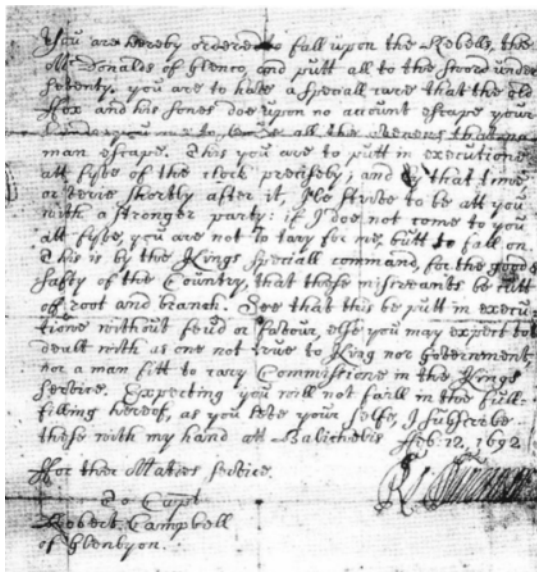 You are hereby ordered to fall upon the Rebells, the
McDonalds of Glenco, and putt all to the sword under
seventy. you are to have a speciall care that the old
Fox and his sones doe upon no account escape your
hands, you are to secure all the avenues that no
man escape. This you are to putt in executione
att fyve of the clock precisely; and by that time,
or verie shortly after it, I'le strive to be att you
with a stronger party: if I doe not come to you
att fyve, you are not to tary for me, butt to fall on.
This is by the Kings speciall command, for the good &
safty of the Country, that these miscreants be cutt
off root and branch. See that this be putt in execu-
tione without feud or favour, else you may expect to be
dealt with as one not true to King nor Government,
nor a man fitt to cary Commissione in the Kings
service. Expecting you will not faill in the full-
filling hereof, as you love your selfe, I subscribe
these with my hand att Balicholis Feb: 12, 1692
For ther Maties service.
R
To Capt
Robert Campbell
of Glenlyon.